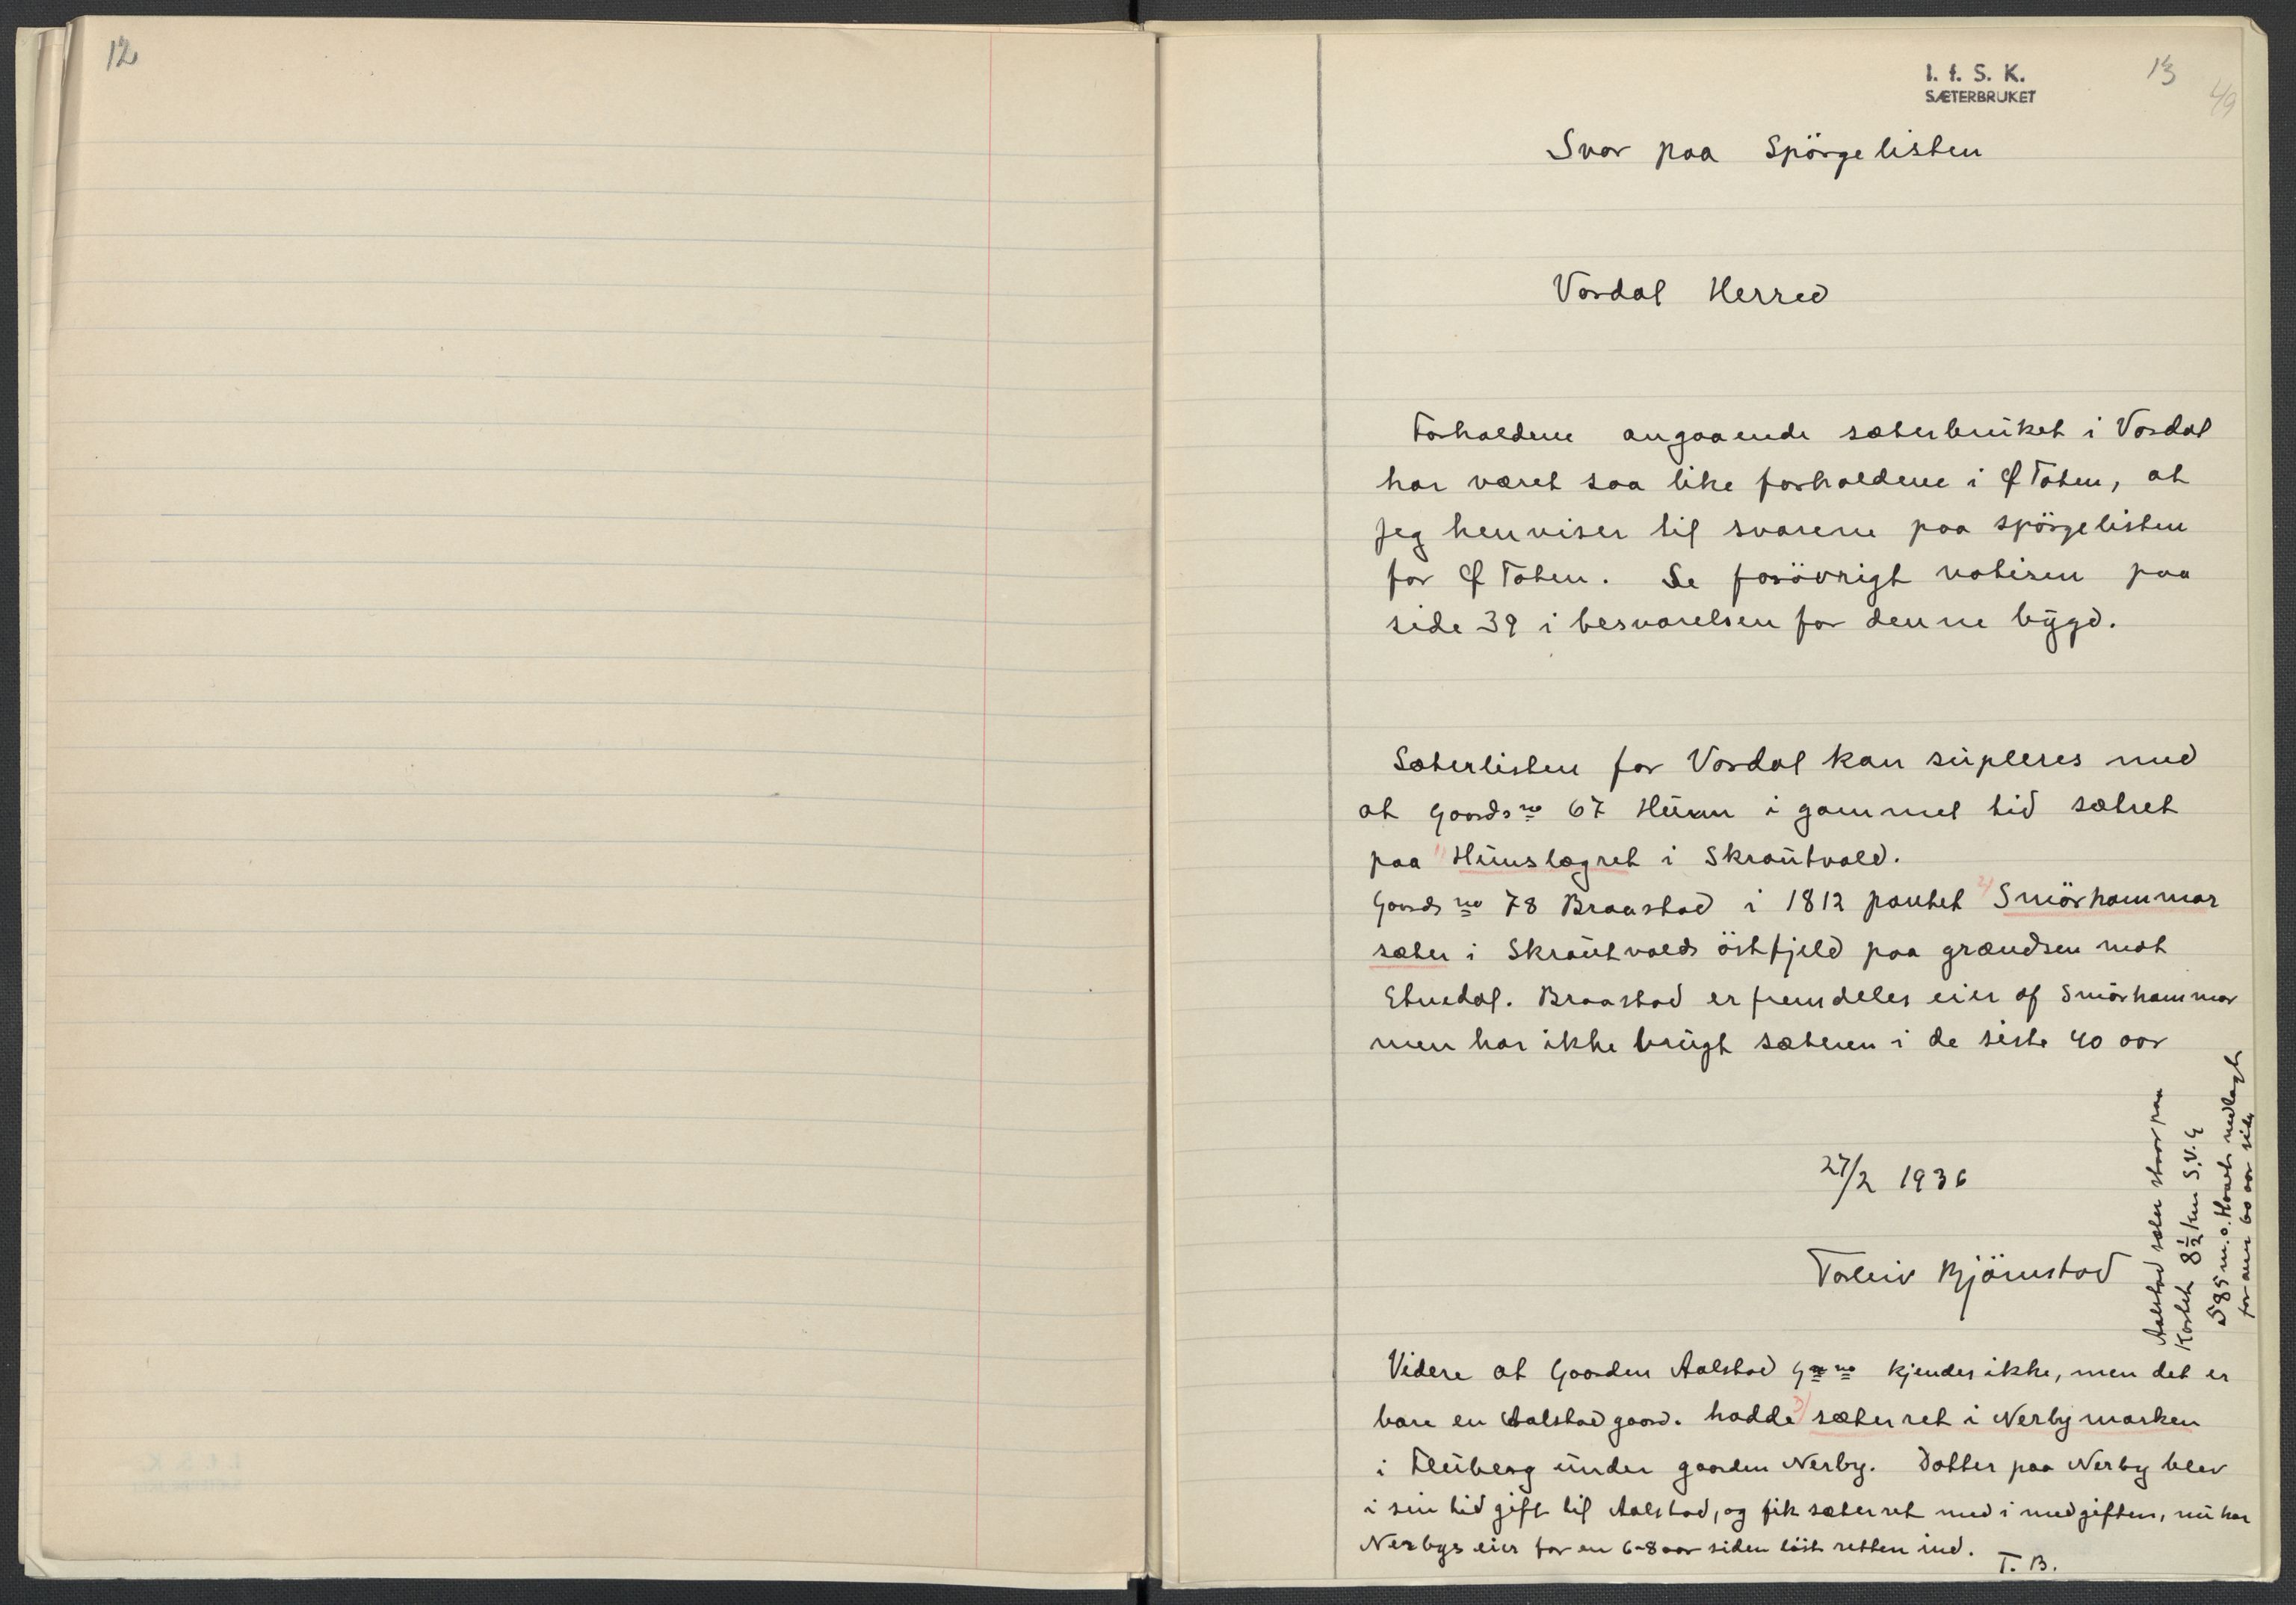 12
I. f. S. K.
SÆTERBRUKET
13
49
Svar paa Spörgelisten
Vardal Herred
Forholdene angaaende sæterbrüket i Vardal
har været saa like forholdene i Ø Toten, at
jeg henviser til svarene paa spörgelisten
for Ø Toten. Se forövrigt notisen paa
side 39 i besvarelsen for denne bÿgd.
Sæterlisten for Vardal kan süpleres med
at Gaards no 67 Hünn i gammel tid sætret
paa 1) Hünslægret i Skraütvald.
Gaards no 78 Braastad i 1812 pantet 2) Smörhammar
sæter i Skraütvalds östfjeld paa grændsen mot
Etnedal. Braastad er fremdeles eier af Smörhammar
men har ikke brügt sæteren i de siste 40 aar
27/2 1936
Torleiv Bjömstad
Aalstad sæter staar paa
Kartet 8 1/2 km S.V. G
585 m. o. Havet nedlagt
for um 60 aar siden
Videre at Gaarden Aalstad G no kjendes ikke, men det er
bare en Aalstad gaard. hadde 3) sæterret i Nerbymarken
i Flüberg ünder gaarden Nerby. Datter paa Nerby blev
i sin tid gift til Aalstad, og fik sæterret med i medgiften, nü har
Nerbys eier for en 6-8 aar siden löst retten ind.
T. B.